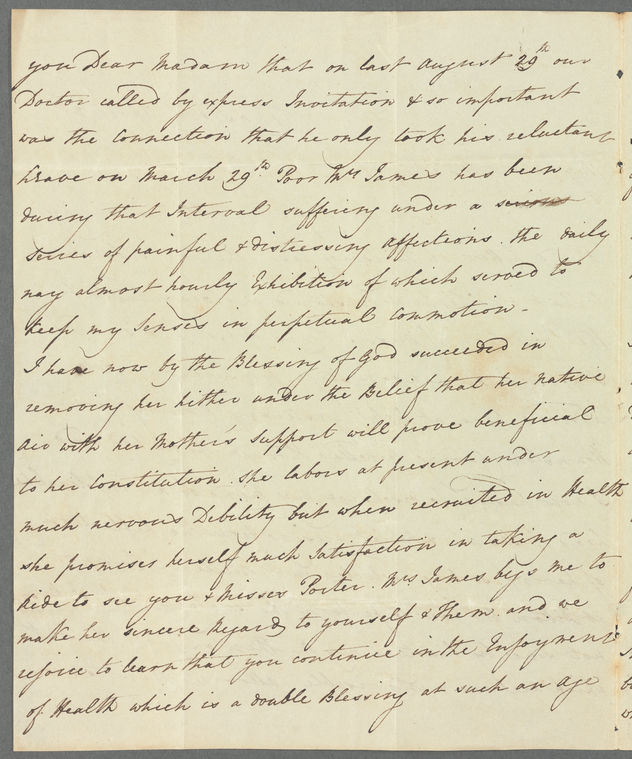 you Dear Madam that on last August 29th our
Doctor called by express Invitation & so important
was the Connection that he only took his reluctant
leave on March 29th Poor Mrs James has been
during that Interval suffering under a serious
series of painful & distressing Affections. the daily
nay almost hourly Exhibition of which served to
keep my Senses in perpetual Commotion -
I have now by the Blessing of God succeeded in
removing her hither under the Belief that her native
Air with her Mother's Support will prove beneficial
to her Constitution. she labors at present under
much nervous Debility but when recruited in Health
she promises herself much Satisfaction in taking a
Ride to see you & Misses Porter. Mrs James begs me to
make her sincere Regards to yourself & Them. and we
rejoice to learn that you continue in the Enjoyment
of Health which is a double Blessing at such an Age